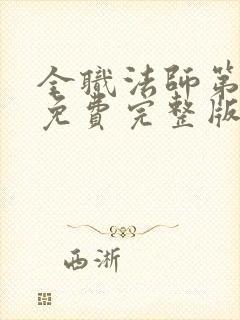 全職法師第
免費完整版
西浙